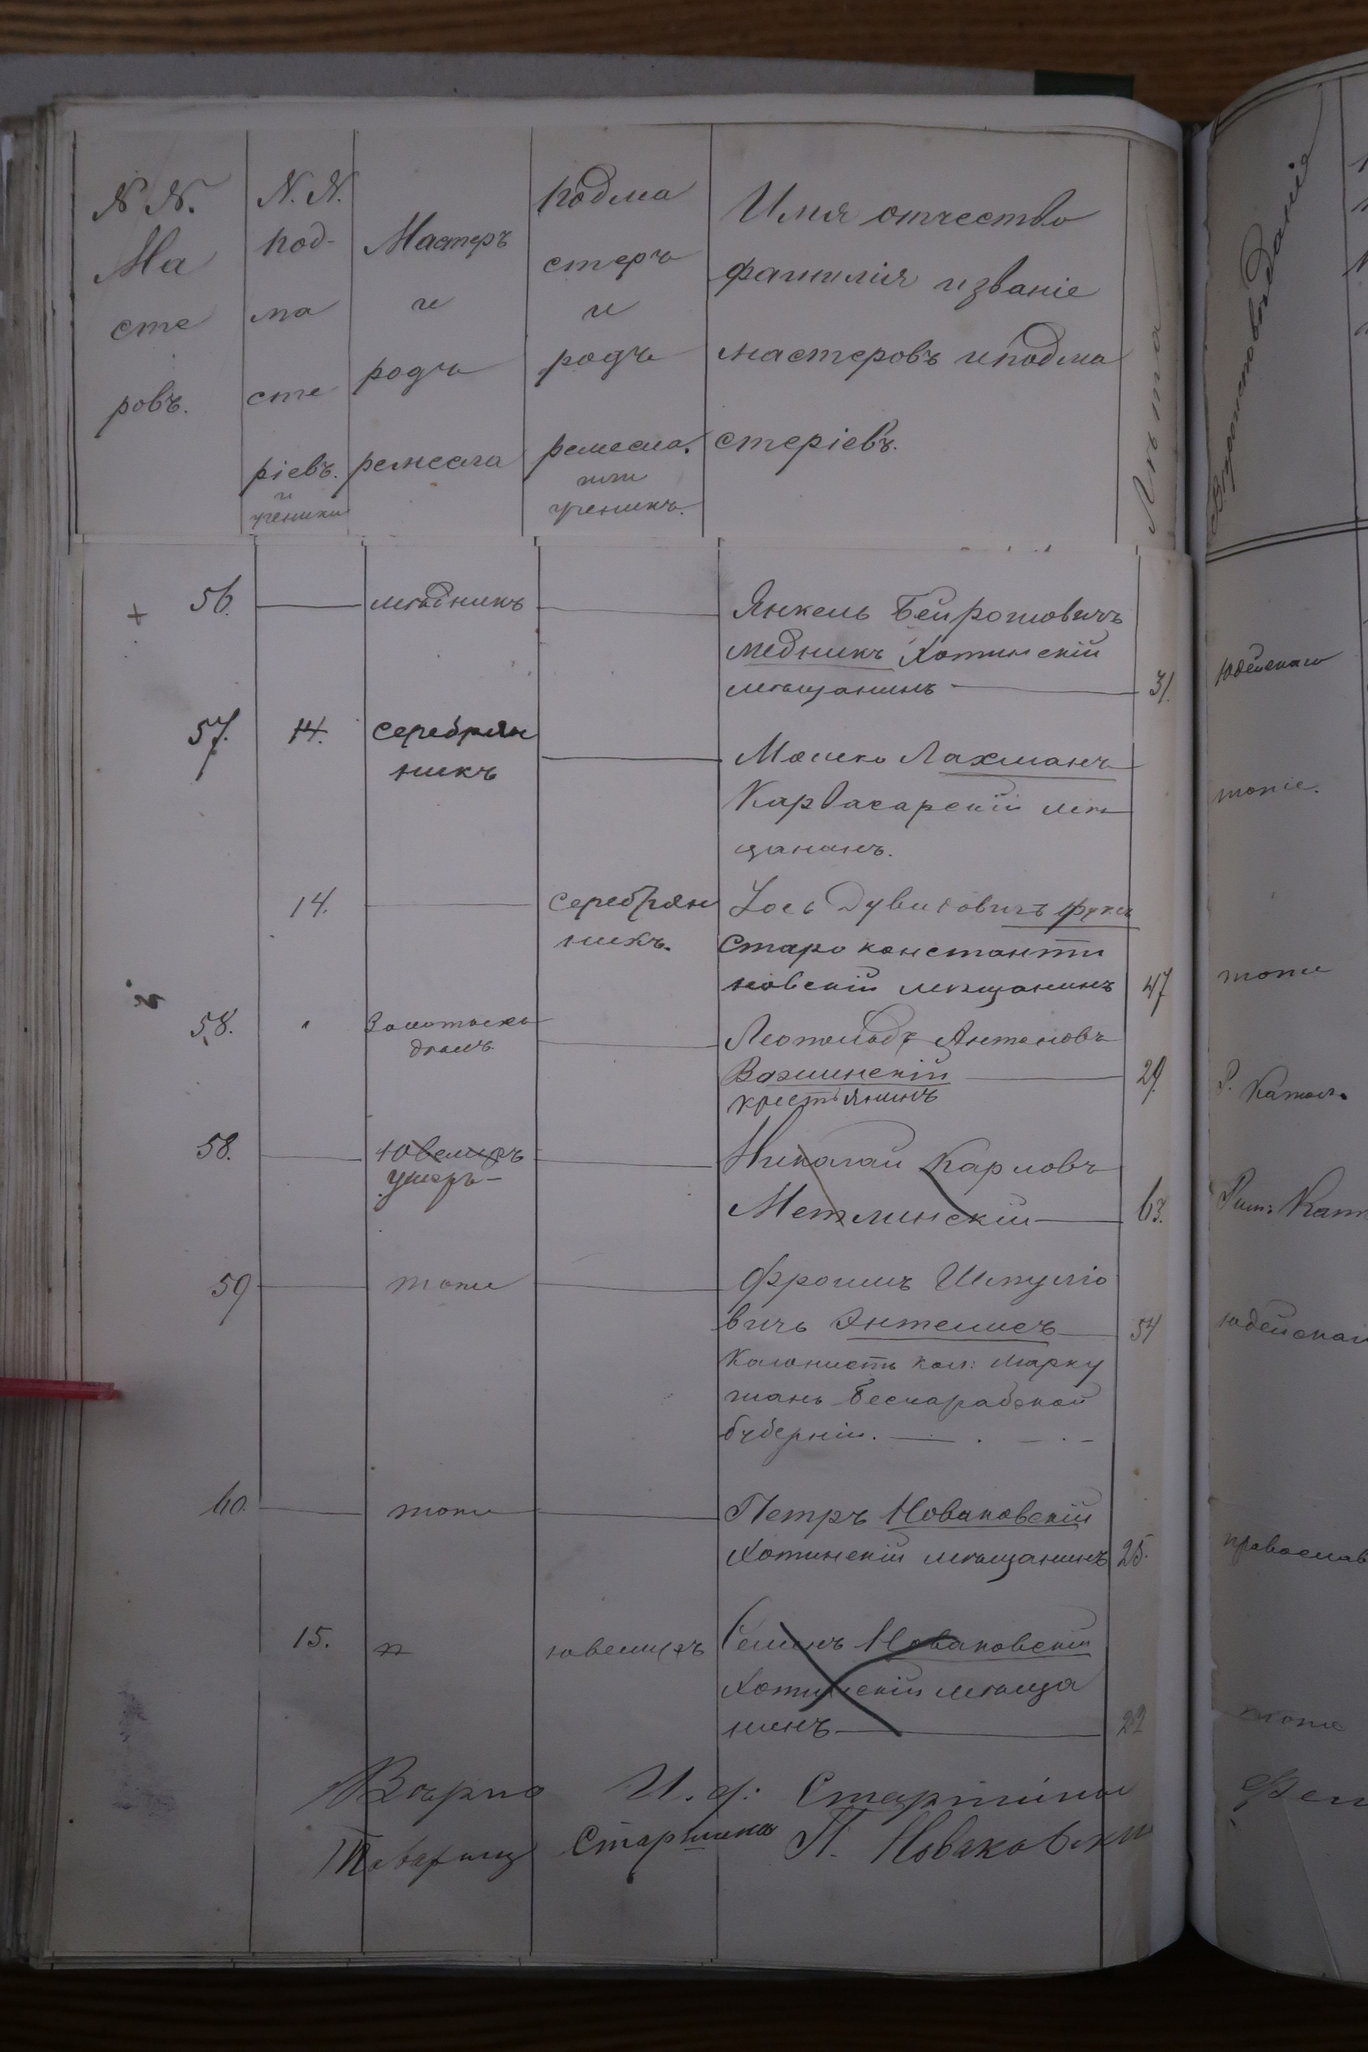 № №. Ма сте ровъ.
№. №. Под- ма сте ріевъ. и ученики
Мастеръ и родъ ремесла
Подма стеръ и родъ ремесла. или ученикъ.
Имя отчество
фамилія и званіе
мастеровъ и подма
стеріевъ.
Лѣта
Вѣроисповѣданіе
+ 56. мѣдникъ Янкель
медникъ Хотинскій
мѣщанинъ 31. Юдейскаго
57. 14. Серебрян Мошко Лахманъ
никъ Карвасарскій мѣ тоже.
щанинъ.
14. Серебрян Іось Дувидовичъ Фуксъ
никъ. Старо константи
новскій мѣщанинъ 47 тоже
58. Леопольдъ Антоновъ
Важинскій 29. Р. Катол.
крестьянинъ
58. Ювелиръ Николай Карловъ
умеръ- Метлинскій 63. Рим: Катол
59 тоже Фроимъ Шмуліо
вичъ 54 юдейскаго
Колонистъ кол: Марку
шань Бессарабской
губерніи.
60. тоже Петръ Новаковскій
Хотинскій мѣщанинъ 25. православ
15. ювелиръ Семенъ Новаковскій
Хотинскій мѣща
нинъ 22 тоже
Вѣрно И. д: Старшины
Товарищ Старшина П. Новаковскій